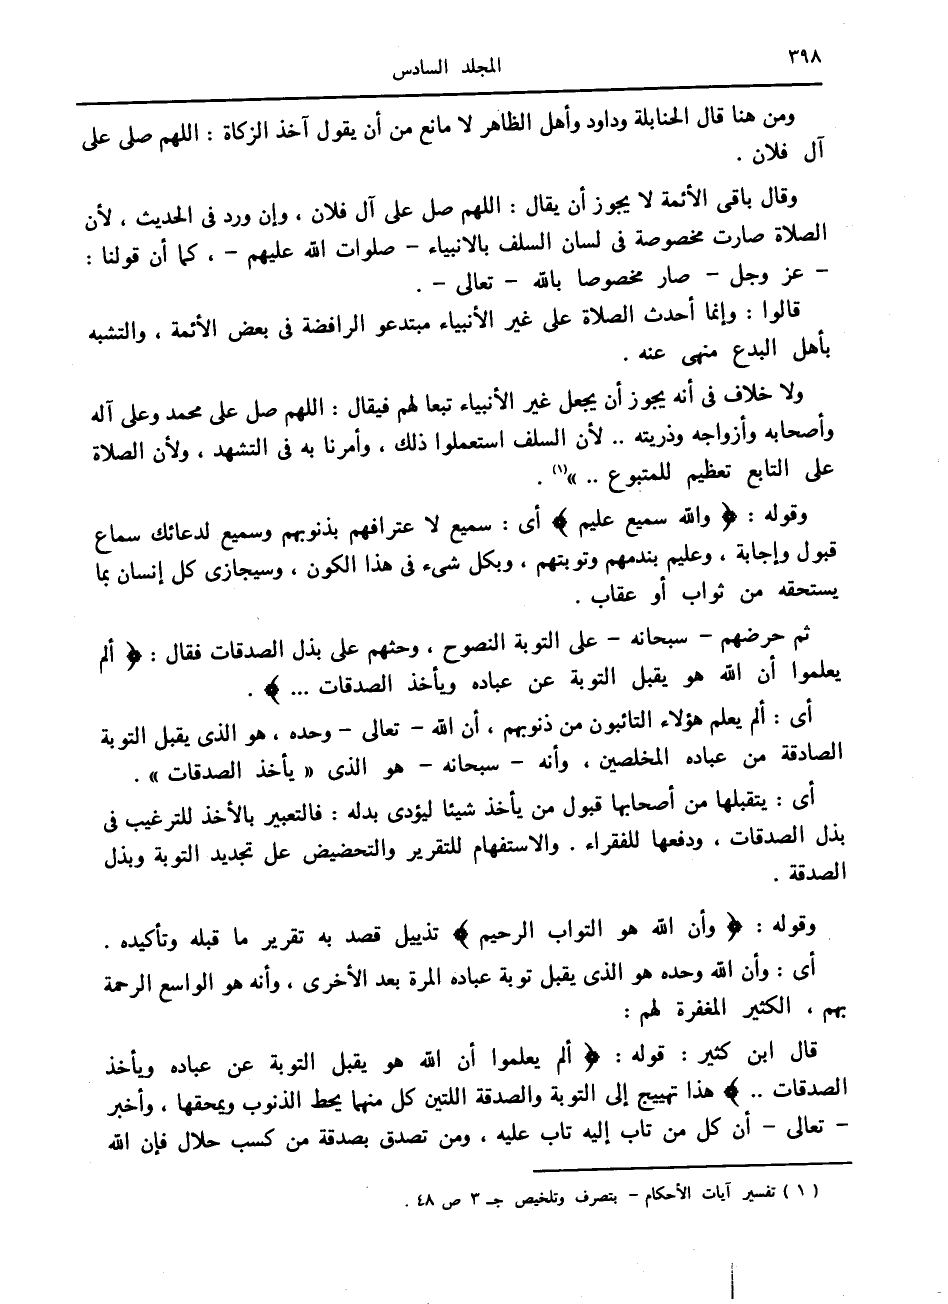 ٣٩٨
المجلد السادس
ومن هنا قال الحنابلة وداود وأهل الظاهر لا مانع من أن يقول آخذ الزكاة : اللهم صلى على
آل فلان .
وقال باقى الأئمة لا يجوز أن يقال : اللهم صل على آل فلان ، وإن ورد فى الحديث ، لأن
الصلاة صارت مخصوصة فى لسان السلف بالانبياء – صلوات الله عليهم – ، كما أن قولنا :
– عز وجل – صار مخصوصا بالله – تعالى – .
قالوا : وإنما أحدث الصلاة على غير الأنبياء مبتدعو الرافضة فى بعض الأئمة ، والتشبه
بأهل البدع منهى عنه .
ولا خلاف فى أنه يجوز أن يجعل غير الأنبياء تبعا لهم فيقال : اللهم صل على محمد وعلى آله
وأصحابه وأزواجه وذريته .. لأن السلف استعملوا ذلك ، وأمرنا به فى التشهد ، ولأن الصلاة
على التابع تعظيم للمتبوع .. »(١) .
وقوله : ﴿ والله سميع عليم ﴾ أى : سميع لا عترافهم بذنوبهم وسميع لدعائك سماع
قبول وإجابة ، وعليم بندمهم وتوبتهم ، وبكل شىء فى هذا الكون ، وسيجازى كل إنسان بما
يستحقه من ثواب أو عقاب .
ثم حرضهم – سبحانه – على التوبة النصوح ، وحثهم على بذل الصدقات فقال : ﴿ ألم
يعلموا أن الله هو يقبل التوبة عن عباده ويأخذ الصدقات ... ﴾ .
أى : ألم يعلم هؤلاء التائبون من ذنوبهم ، أن الله – تعالى – وحده ، هو الذى يقبل التوبة
الصادقة من عباده المخلصين ، وأنه – سبحانه – هو الذى « يأخذ الصدقات » .
أى : يتقبلها من أصحابها قبول من يأخذ شيئا ليؤدى بدله : فالتعبير بالأخذ للترغيب فى
بذل الصدقات ، ودفعها للفقراء . والاستفهام للتقرير والتحضيض عل تجديد التوبة وبذل
الصدقة .
وقوله : ﴿ وأن الله هو التواب الرحيم ﴾ تذييل قصد به تقرير ما قبله وتأكيده .
أى : وأن الله وحده هو الذى يقبل توبة عباده المرة بعد الأخرى ، وأنه هو الواسع الرحمة
بهم ، الكثير المغفرة لهم :
قال ابن كثير : قوله : ﴿ ألم يعلموا أن الله هو يقبل التوبة عن عباده ويأخذ
الصدقات .. ﴾ هذا تهييج إلى التوبة والصدقة اللتين كل منهما يحط الذنوب ويمحقها ، وأخبر
– تعالى – أن كل من تاب إليه تاب عليه ، ومن تصدق بصدقة من كسب حلال فإن الله
( ١ ) تفسير آيات الأحكام – بتصرف وتلخيص جـ ٣ ص ٤٨ .